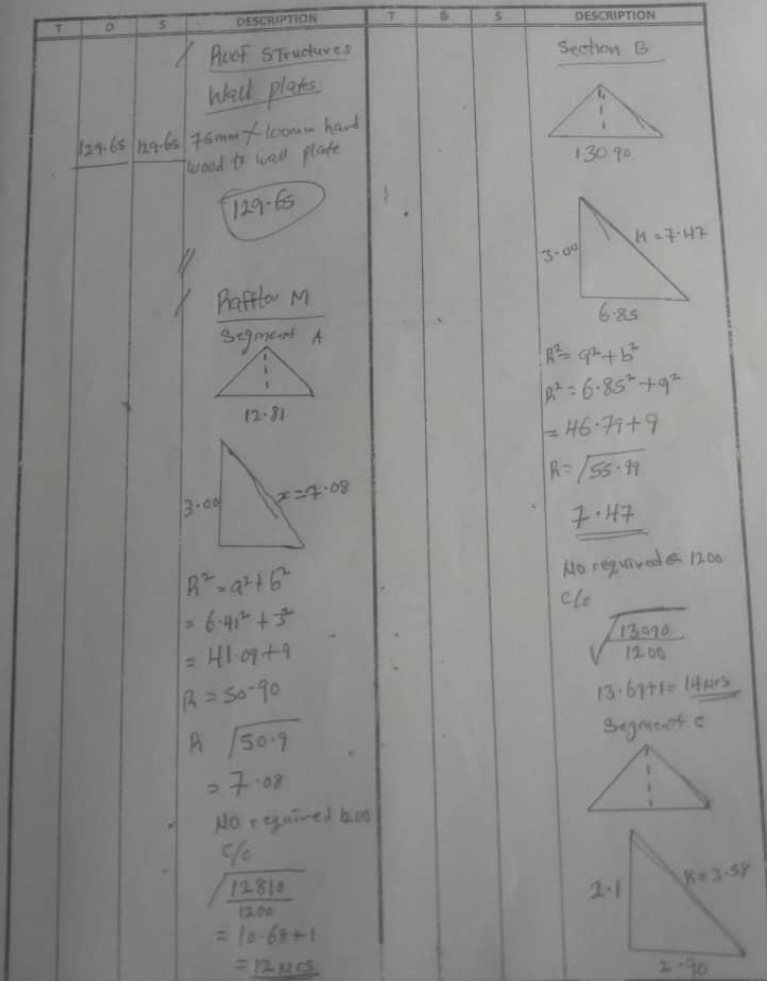 T D S DESCRIPTION
Roof Structures
Wall plates
129.65 129.65 75mm X 100mm hard
wood to wall plate
129.65
Raffter M
Segment A
12.81
3.00 x=7.08
R²=a²+b²
= 6.41²+3²
= 41.09+9
R = 50.90
R √50.9
= 7.08
No required 1200
c/c
√12810
1200
= 10.68+1
= 12 Nrs
T D S DESCRIPTION
Section B
130.90
3.00 R=7.47
6.85
R²=a²+b²
R²=6.85²+9²
= 46.79+9
R=√55.79
7.47
No required @ 1200
c/c
√13090
1200
13.69+1= 14Nrs
Segment C
2.1 R=3.58
2.90